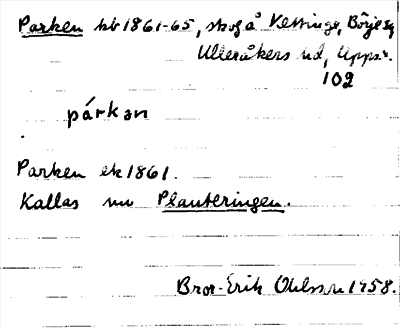 Parken hb 1861-65, skog å Vessinge, Börje sn
Ulleråkers hd, Uppsv.
102
párkən
Parken ek 1861.
Kallas nu Planteringen.
Bror-Erik Ohlsson 1958.